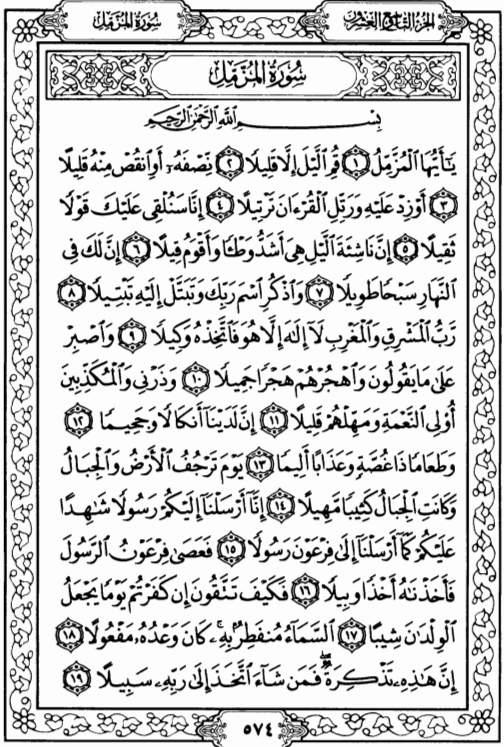 سُورَةُ المُزَّمِّلِ
الجزءُ التَّاسِعُ وَالعِشْرُونَ
سُورَةُ المُزَّمِّلِ
بِسْمِ ٱللَّهِ ٱلرَّحْمَٰنِ ٱلرَّحِيمِ
يَٰٓأَيُّهَا ٱلْمُزَّمِّلُ ١ قُمِ ٱلَّيْلَ إِلَّا قَلِيلًا ٢ نِّصْفَهُۥٓ أَوِ ٱنقُصْ مِنْهُ قَلِيلًا
٣ أَوْ زِدْ عَلَيْهِ وَرَتِّلِ ٱلْقُرْءَانَ تَرْتِيلًا ٤ إِنَّا سَنُلْقِى عَلَيْكَ قَوْلًا
ثَقِيلًا ٥ إِنَّ نَاشِئَةَ ٱلَّيْلِ هِىَ أَشَدُّ وَطْـًٔا وَأَقْوَمُ قِيلًا ٦ إِنَّ لَكَ فِى
ٱلنَّهَارِ سَبْحًا طَوِيلًا ٧ وَٱذْكُرِ ٱسْمَ رَبِّكَ وَتَبَتَّلْ إِلَيْهِ تَبْتِيلًا ٨
رَّبُّ ٱلْمَشْرِقِ وَٱلْمَغْرِبِ لَآ إِلَٰهَ إِلَّا هُوَ فَٱتَّخِذْهُ وَكِيلًا ٩ وَٱصْبِرْ
عَلَىٰ مَا يَقُولُونَ وَٱهْجُرْهُمْ هَجْرًا جَمِيلًا ١٠ وَذَرْنِى وَٱلْمُكَذِّبِينَ
أُو۟لِى ٱلنَّعْمَةِ وَمَهِّلْهُمْ قَلِيلًا ١١ إِنَّ لَدَيْنَآ أَنكَالًا وَجَحِيمًا ١٢
وَطَعَامًا ذَا غُصَّةٍ وَعَذَابًا أَلِيمًا ١٣ يَوْمَ تَرْجُفُ ٱلْأَرْضُ وَٱلْجِبَالُ
وَكَانَتِ ٱلْجِبَالُ كَثِيبًا مَّهِيلًا ١٤ إِنَّآ أَرْسَلْنَآ إِلَيْكُمْ رَسُولًا شَٰهِدًا
عَلَيْكُمْ كَمَآ أَرْسَلْنَآ إِلَىٰ فِرْعَوْنَ رَسُولًا ١٥ فَعَصَىٰ فِرْعَوْنُ ٱلرَّسُولَ
فَأَخَذْنَٰهُ أَخْذًا وَبِيلًا ١٦ فَكَيْفَ تَتَّقُونَ إِن كَفَرْتُمْ يَوْمًا يَجْعَلُ
ٱلْوِلْدَٰنَ شِيبًا ١٧ ٱلسَّمَآءُ مُنفَطِرٌۢ بِهِۦ ۚ كَانَ وَعْدُهُۥ مَفْعُولًا ١٨
إِنَّ هَٰذِهِۦ تَذْكِرَةٌ ۖ فَمَن شَآءَ ٱتَّخَذَ إِلَىٰ رَبِّهِۦ سَبِيلًا ١٩
٥٧٤